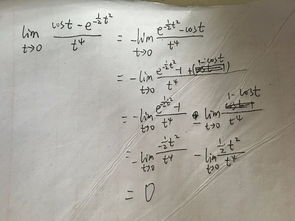 lim t→0 (cost - e^{-½t²})/t⁴ = -lim t→0 (e^{-½t²} - cost)/t⁴
= -lim t→0 (e^{-½t²} - 1 + ( ))/t⁴
= -lim t→0 (e^{-½t²} - 1)/t⁴ - lim t→0 (1 - cost)/t⁴
= -lim t→0 (-½t²)/t⁴ - lim t→0 (½t²)/t⁴
= 0